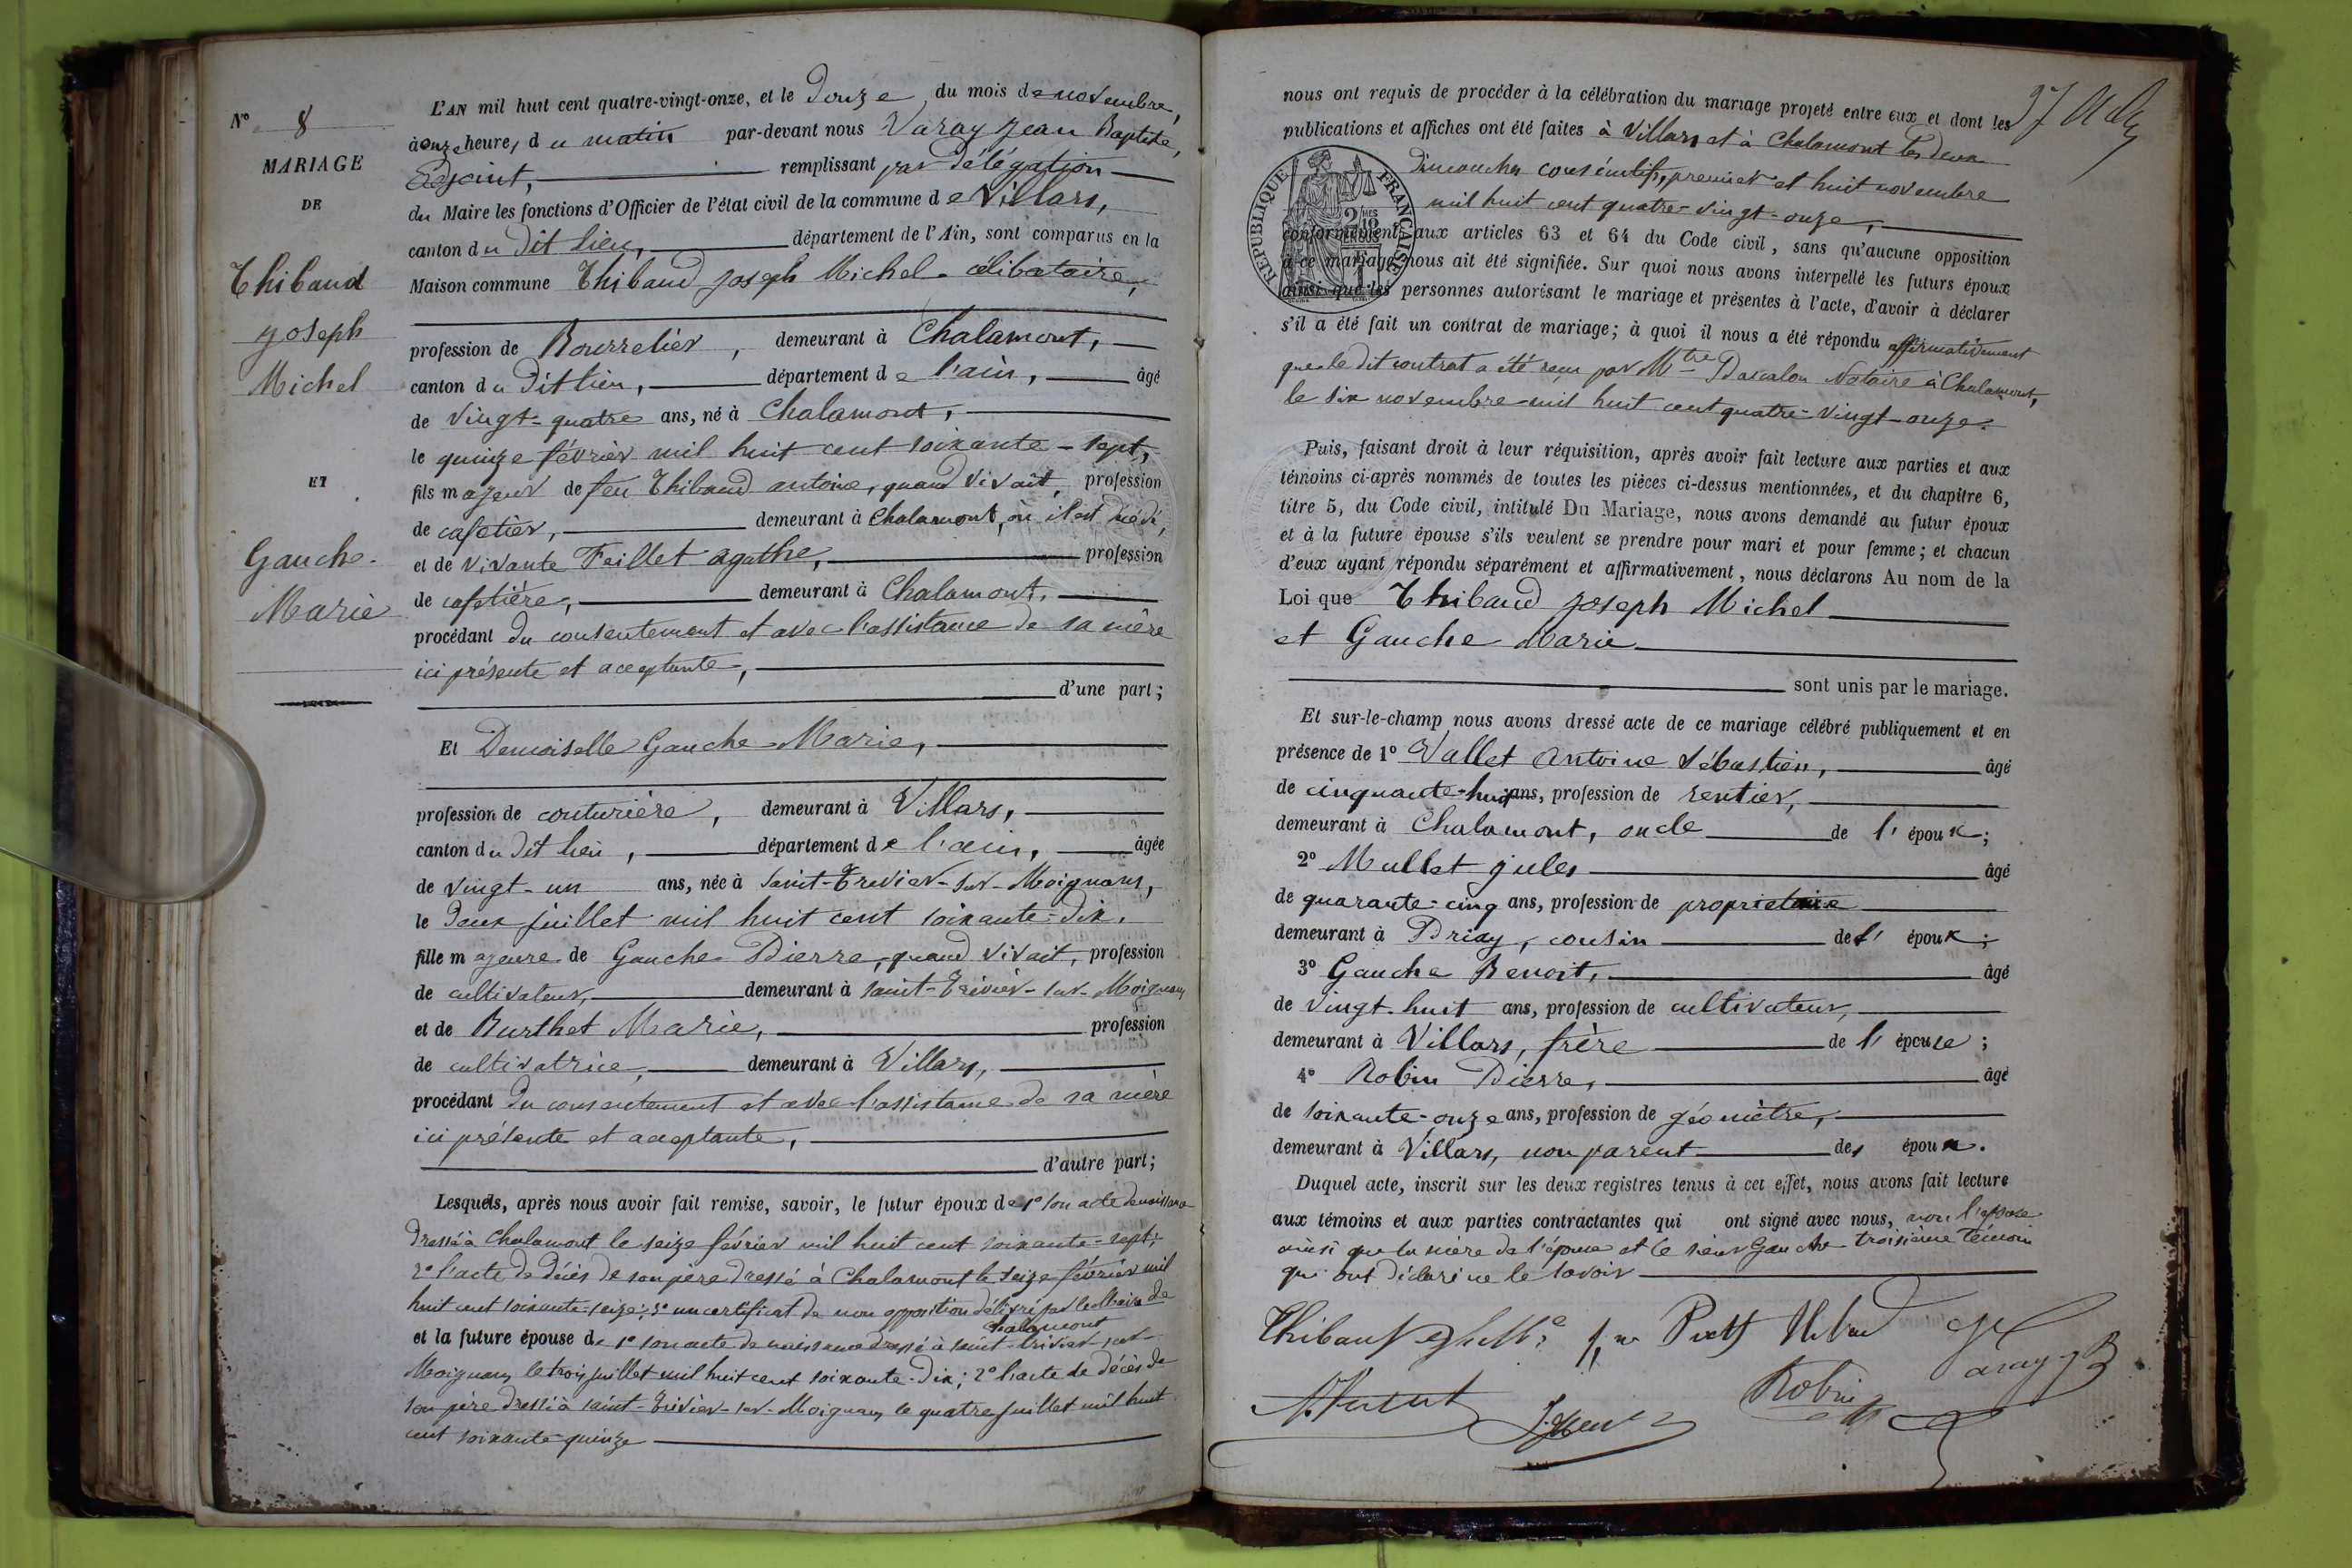 N° 8
MARIAGE
DE
Thibaud
Joseph
Michel
ET
Gauche
Marie
L'AN mil huit cent quatre-vingt-onze, et le Douze du mois de novembre,
à onze heures du matin par-devant nous Varay Jean Baptiste,
Adjoint, remplissant par délégation
du Maire les fonctions d'Officier de l'état civil de la commune de Villars,
canton du dit lieu, département de l'Ain, sont comparus en la
Maison commune Thibaud Joseph Michel célibataire,
profession de Bourrelier, demeurant à Chalamont,
canton du Dit lieu, département de l'ain, âgé
de vingt-quatre ans, né à Chalamont,
le quinze février mil huit cent soixante-sept,
fils majeur de feu Thibaud antoine, quand vivait, profession
de cafetier, demeurant à Chalamont, où il est décédé,
et de vivante Feillet agathe, profession
de cafetière, demeurant à Chalamont,
procédant du consentement et avec l'assistance de sa mère
ici présente et acceptante,
d'une part;
Et Demoiselle Gauche Marie,
profession de couturière, demeurant à Villars,
canton du Dit lieu, département de l'ain, âgée
de vingt-un ans, née à Saint-Trivier-sur-Moignans,
le deux juillet mil huit cent soixante-dix,
fille majeure de Gauche Pierre, quand vivait, profession
de cultivateur, demeurant à saint-Trivier-sur-Moignans
et de Burthet Marie, profession
de cultivatrice, demeurant à Villars,
procédant du consentement et avec l'assistance de sa mère
ici présente et acceptante,
d'autre part;
Lesquels, après nous avoir fait remise, savoir, le futur époux de 1° son acte de naissance
Dressé à Chalamont le seize février mil huit cent soixante-sept;
2° l'acte de décès de son père dressé à Chalamont le seize février mil
huit cent soixante-seize; 3° un certificat de non opposition délivré par le Maire de
Chalamont
et la future épouse de 1° son acte de naissance dressé à saint-trivier-sur-
Moignans le trois juillet mil huit cent soixante-dix; 2° l'acte de décès de
son père dressé à saint-Trivier-sur-Moignans le quatre juillet mil huit
cent soixante quinze
nous ont requis de procéder à la célébration du mariage projeté entre eux et dont les
publications et affiches ont été faites à Villars et à Chalamont les deux
Dimanches consécutifs, premier et huit novembre
mil huit cent quatre-vingt-onze,
REPUBLIQUE FRANÇAISE
conformément aux articles 63 et 64 du Code civil, sans qu'aucune opposition
à ce mariage nous ait été signifiée. Sur quoi nous avons interpellé les futurs époux
ainsi que les personnes autorisant le mariage et présentes à l'acte, d'avoir à déclarer
s'il a été fait un contrat de mariage; à quoi il nous a été répondu affirmativement
que le dit contrat a été reçu par Mtre Notaire à Chalamont,
le six novembre mil huit cent quatre-vingt-onze.
Puis, faisant droit à leur réquisition, après avoir fait lecture aux parties et aux
témoins ci-après nommés de toutes les pièces ci-dessus mentionnées, et du chapitre 6,
titre 5, du Code civil, intitulé Du Mariage, nous avons demandé au futur époux
et à la future épouse s'ils veulent se prendre pour mari et pour femme; et chacun
d'eux ayant répondu séparément et affirmativement, nous déclarons Au nom de la
Loi que Thibaud Joseph Michel
et Gauche Marie
sont unis par le mariage.
Et sur-le-champ nous avons dressé acte de ce mariage célébré publiquement et en
présence de 1° Vallet Antoine Sébastien, âgé
de cinquante-huit ans, profession de rentier,
demeurant à Chalamont, oncle de l'époux;
2° Mullet Jules âgé
de quarante-cinq ans, profession de propriétaire
demeurant à Priay, cousin de l'époux;
3° Gauche Benoit, âgé
de vingt-huit ans, profession de cultivateur,
demeurant à Villars, frère de l'épouse;
4° Robin Pierre, âgé
de soixante-onze ans, profession de géomètre,
demeurant à Villars, non parent des époux.
Duquel acte, inscrit sur les deux registres tenus à cet effet, nous avons fait lecture
aux témoins et aux parties contractantes qui ont signé avec nous, non l'épouse
ainsi que la mère de l'épouse et le sieur Gauche troisième témoin
qui ont déclaré ne le savoir
Robin
Varay JB